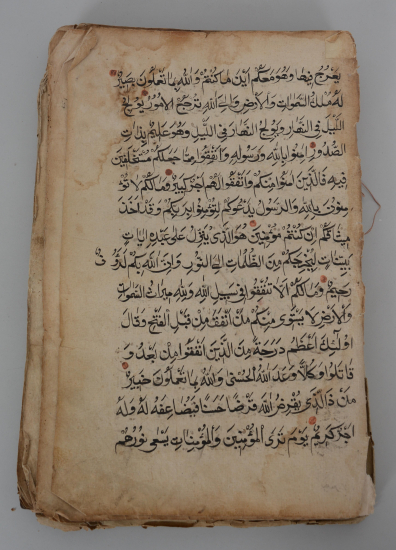 يعرج فيها وهو معكم اين ما كنتم والله بما تعملون بصير
له ملك السموات والارض والى الله ترجع الامور يولج
الليل في النهار ويولج النهار في الليل وهو عليم بذات
الصدور امنوا بالله ورسوله وانفقوا مما جعلكم مستخلفين
فيه فالذين امنوا منكم وانفقوا لهم اجر كبير وما لكم لا تؤ
منون بالله والرسول يدعوكم لتؤمنوا بربكم وقد اخذ
ميثاقكم ان كنتم مؤمنين هو الذي ينزل على عبده ايات
بينات ليخرجكم من الظلمات الى النور وان الله بكم لرؤف
رحيم وما لكم الا تنفقوا في سبيل الله ولله ميراث السموات
والارض لا يستوى منكم من انفق من قبل الفتح وقاتل
اولئك اعظم درجة من الذين انفقوا من بعد و
قاتلوا وكلا وعد الله الحسنى والله بما تعملون خبير
من ذا الذي يقرض الله قرضا حسنا فيضاعفه له وله
اجر كريم يوم ترى المؤمنين والمؤمنات يسعى نورهم